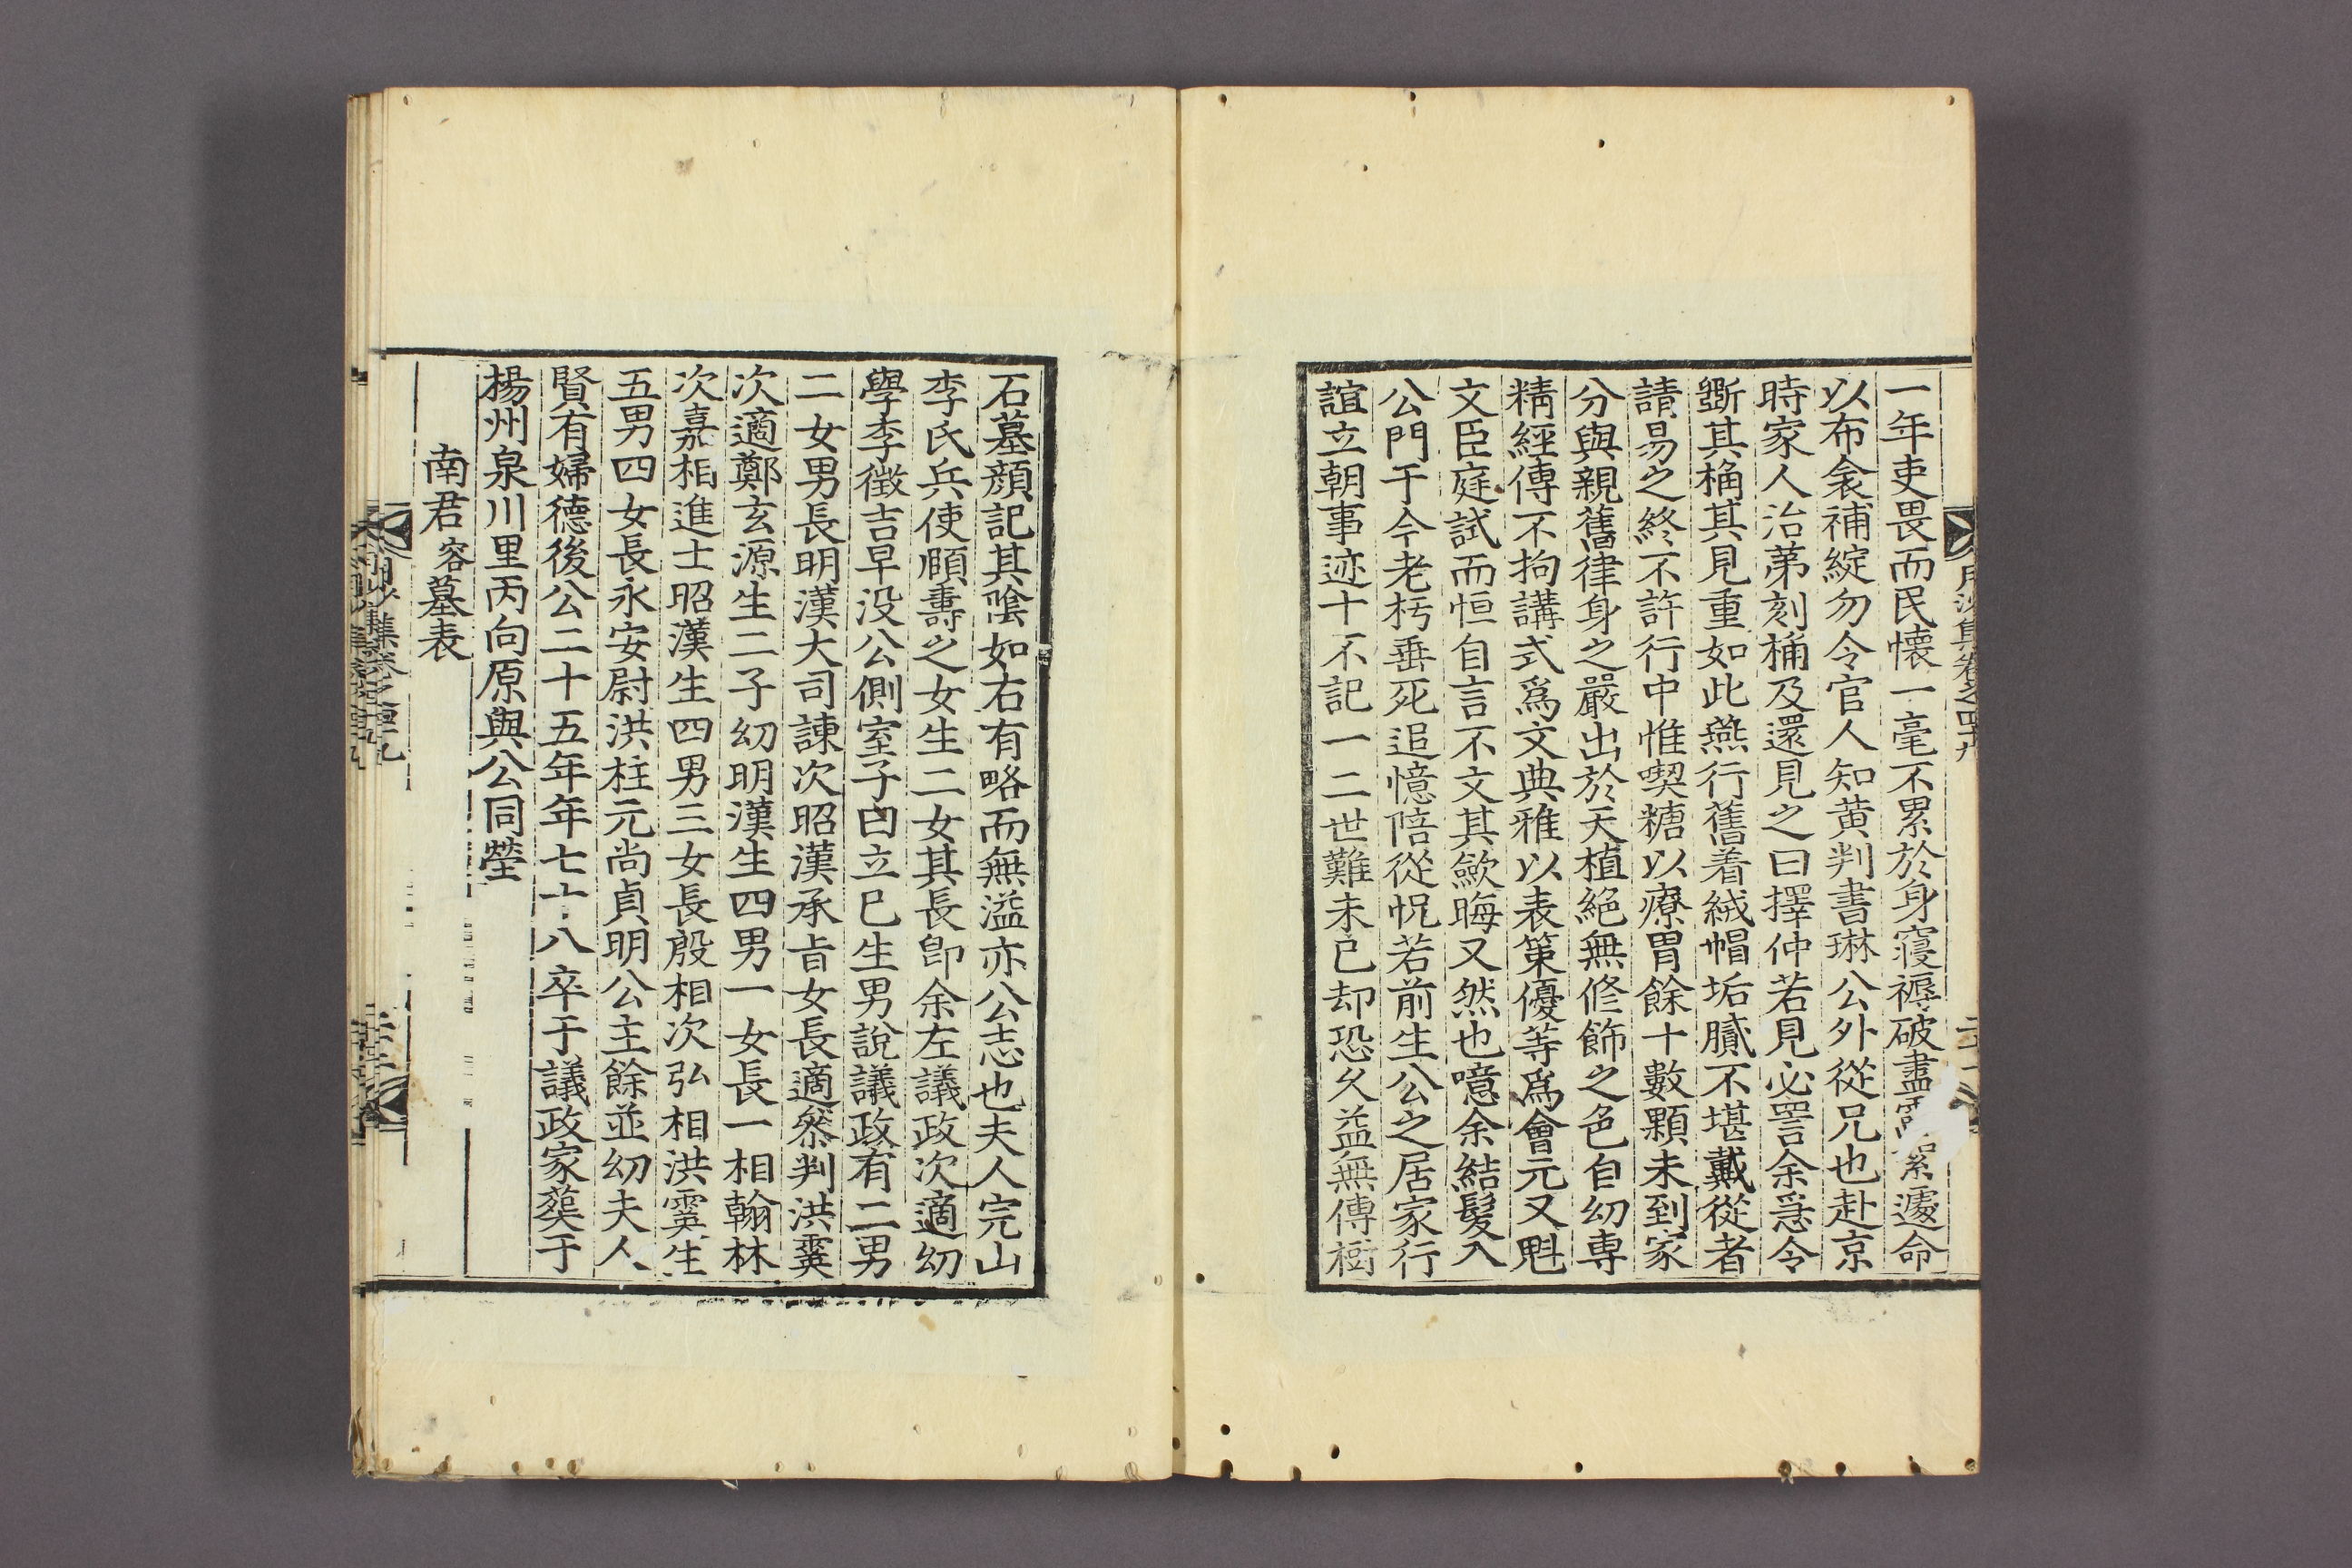 月沙集卷之四十九
一年吏畏而民懷一毫不累於身寢褥破盡
遽命
以布衾補綻勿令官人知黃判書琳公外從兄也赴京
時家人治茅刻桶及還見之曰擇仲若見必詈余爲令
斲其桷其見重如此燕行舊着絨帽垢膩不堪戴從者
請易之終不許行中惟喫糖以療胃餘十數顆未到家
分與親舊律身之嚴出於天植絶無修飾之色自幼專
精經傳不拘講式爲文典雅以表策優等爲會元又魁
文臣庭試而恒自言不文其歛晦又然也噫余結髮入
公門于今老朽垂死追憶陪從怳若前生公之居家行
誼立朝事迹十不記一二世難未已却恐久益無傳樹
石墓顔記其陰如右有略而無溢亦公志也夫人完山
李氏兵使頤壽之女生二女其長卽余左議政次適幼
學李徵吉早沒公側室子曰立已生男說議政有二男
二女男長明漢大司諫次昭漢承旨女長適叅判洪霙
次適鄭玄源生二子幼明漢生四男一女長一相翰林
次嘉相進士昭漢生四男三女長殷相次弘相洪霙生
五男四女長永安尉洪柱元尚貞明公主餘並幼夫人
賢有婦德後公二十五年年七十八卒于議政家葬于
楊州泉川里丙向原與公同塋
南君容墓表